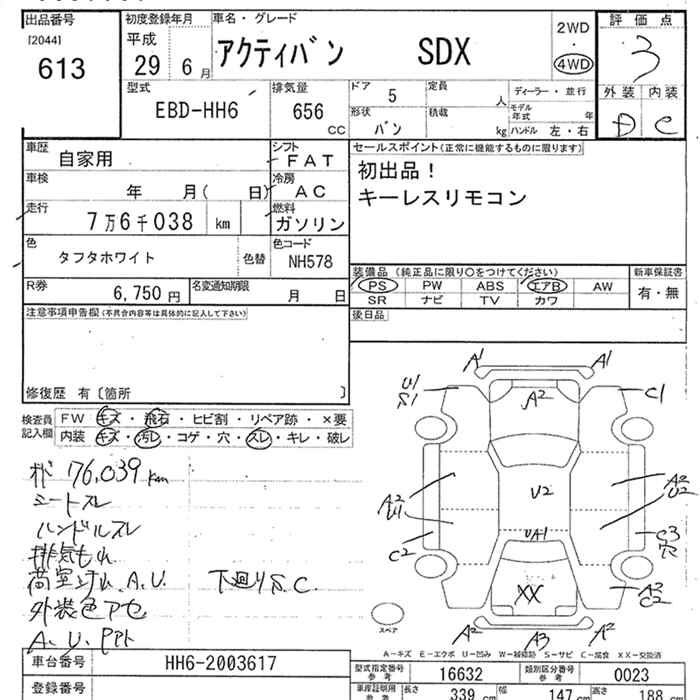 出品番号 初度登録年月 車名・グレード 評価点
[2044] 平成 2WD
613 29 6月 アクティバン SDX 4WD 3
型式 排気量 ドア 5 定員 人 ディーラー・並行 外装 内装
EBD-HH6 656 CC 形状 バン 積載 kg モデル年式 年 D C
ハンドル 左・右
車歴 自家用 シフト FAT セールスポイント(正常に機能するものに限ります)
車検 年 月( 日) 冷房 AC 初出品!
走行 7万6千038 km 燃料 ガソリン キーレスリモコン
色 タフタホワイト 色替 色コード NH578
装備品(純正品に限り○をつけてください) 新車保証書
R券 6,750円 名変通知期限 月 日 PS PW ABS エアB AW 有・無
SR ナビ TV カワ
注意事項申告欄(不具合内容等は具体的に記入して下さい) 後日品
修復歴 有〔箇所 〕
検査員記入欄 FW キズ・飛石・ヒビ割・リペア跡・×要
内装 キズ・汚レ・コゲ・穴・スレ・キレ・破レ
76,039km
シートスレ
ハンドルスレ
排気もれ
荷室 A.U. 下廻りS.C.
外装色アセ
A.U.
A1 A1
U1 S1 A2 C1
A2 U1 U2 A2 U2
C2 UA1 C3 穴
XX A2 C2
スペア A2 A3 A2
A-キズ E-エクボ U-凹み W-補修跡 S-サビ C-腐食 XX-交換済
車台番号 HH6-2003617 型式指定番号 参考 16632 類別区分番号 参考 0023
登録番号 車庫証明用 参考 長さ 339 cm 幅 147 cm 高さ 188 cm